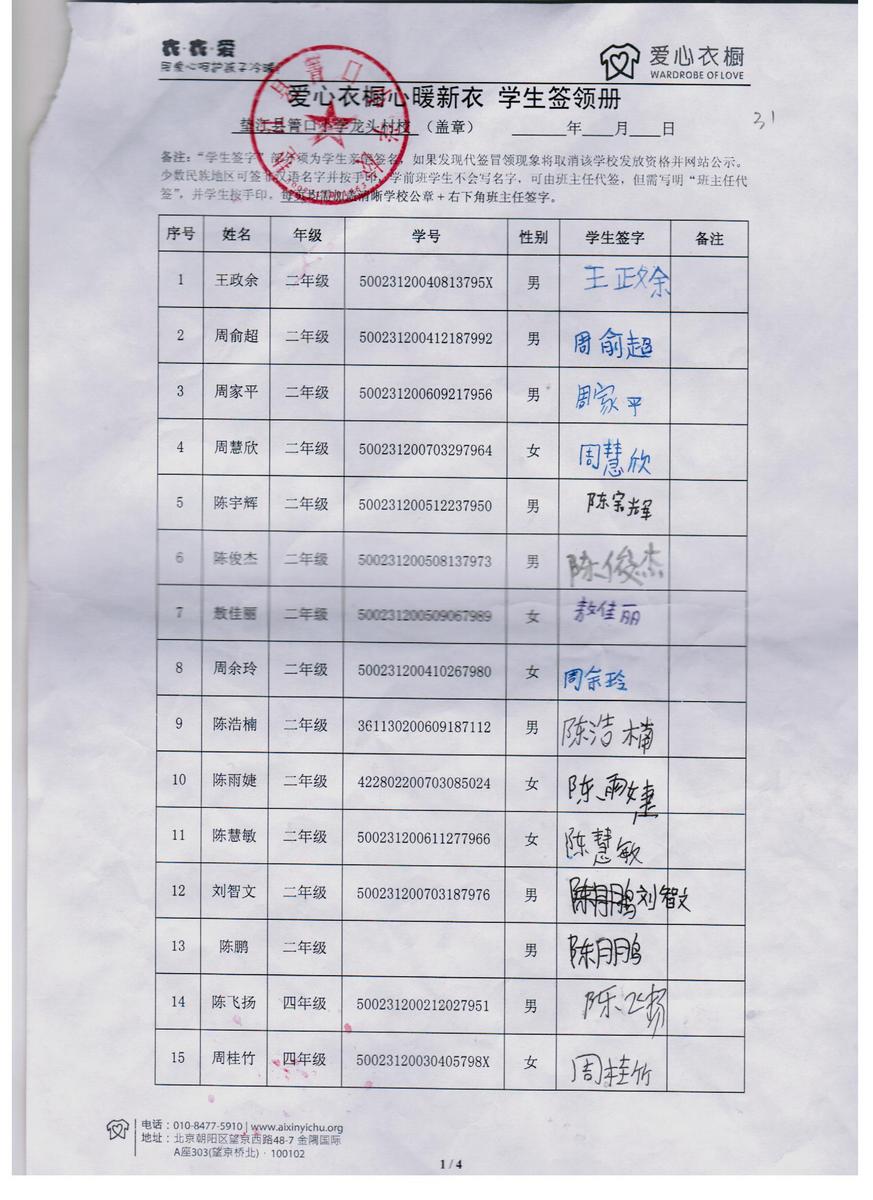 衣·衣·爱
用爱心呵护孩子冷暖
爱心衣橱
WARDROBE OF LOVE
爱心衣橱心暖新衣 学生签领册
垫江县箐口小学龙头村校 (盖章) 年 月 日
31
备注:“学生签字”部分须为学生亲笔签名,如果发现代签冒领现象将取消该学校发放资格并网站公示。
少数民族地区可签非汉语名字并按手印,学前班学生不会写名字,可由班主任代签,但需写明“班主任代
签”,并学生按手印。每页均需加盖清晰学校公章+右下角班主任签字。
序号 姓名 年级 学号 性别 学生签字 备注
1 王政余 二年级 50023120040813795X 男 王政余
2 周俞超 二年级 500231200412187992 男 周俞超
3 周家平 二年级 500231200609217956 男 周家平
4 周慧欣 二年级 500231200703297964 女 周慧欣
5 陈宇辉 二年级 500231200512237950 男 陈宇辉
6 陈俊杰 二年级 500231200508137973 男 陈俊杰
7 敖佳丽 二年级 500231200509067989 女 敖佳丽
8 周余玲 二年级 500231200410267980 女 周余玲
9 陈浩楠 二年级 361130200609187112 男 陈浩楠
10 陈雨婕 二年级 422802200703085024 女 陈雨婕
11 陈慧敏 二年级 500231200611277966 女 陈慧敏
12 刘智文 二年级 500231200703187976 男 陈鹏 刘智文
13 陈鹏 二年级 男 陈鹏
14 陈飞扬 四年级 500231200212027951 男 陈飞扬
15 周桂竹 四年级 50023120030405798X 女 周桂竹
电话:010-8477-5910 | www.aixinyichu.org
地址:北京朝阳区望京西路48-7 金隅国际
A座303(望京桥北)·100102
1 / 4